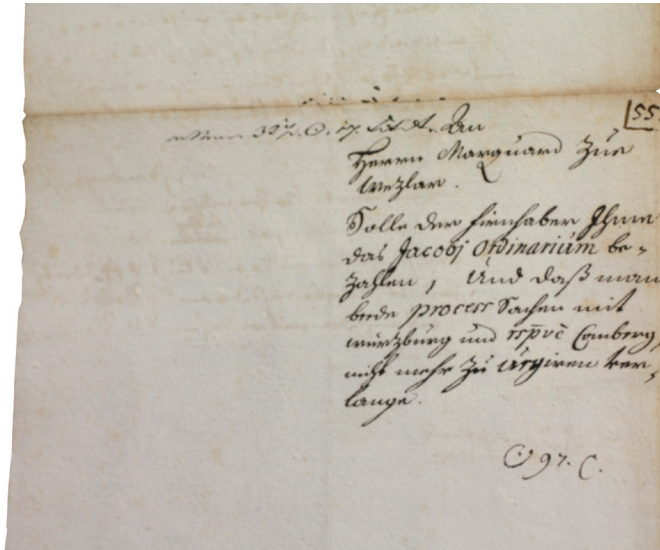 55.
An
Herrn Marquard Zue
Wezlar.
Solle der hirnhaber Ihme
das Jacobj Ordinarium be=
zahlen, Und daß man
beede process Sachen mit
würzburg und rspvè Comberg,
nicht mehr zu urgiren ver=
lange.
97. C.